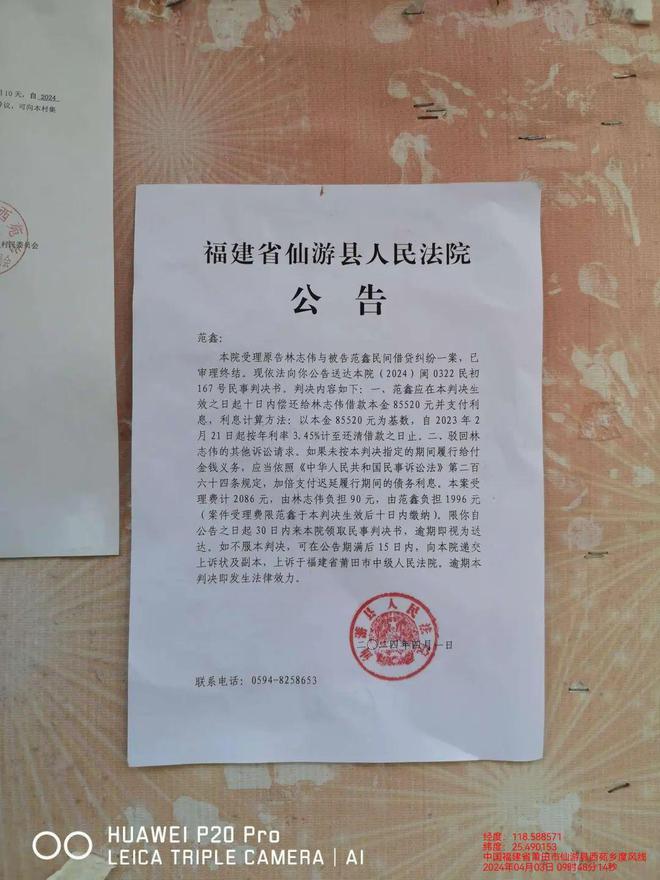 月10天，自 2024
异议，可向本村集
村民委员会
福建省仙游县人民法院
公 告
范鑫：
本院受理原告林志伟与被告范鑫民间借贷纠纷一案，已
审理终结。现依法向你公告送达本院（2024）闽0322民初
167号民事判决书。判决内容如下：一、范鑫应在本判决生
效之日起十日内偿还给林志伟借款本金85520元并支付利
息，利息计算方法：以本金85520元为基数，自2023年2
月21日起按年利率3.45%计至还清借款之日止。二、驳回林
志伟的其他诉讼请求。如果未按本判决指定的期间履行给付
金钱义务，应当依照《中华人民共和国民事诉讼法》第二百
六十四条规定，加倍支付迟延履行期间的债务利息。本案受
理费计2086元，由林志伟负担90元，由范鑫负担1996元
（案件受理费限范鑫于本判决生效后十日内缴纳）。限你自
公告之日起30日内来本院领取民事判决书，逾期即视为送
达。如不服本判决，可在公告期满后15日内，向本院递交
上诉状及副本，上诉于福建省莆田市中级人民法院。逾期本
判决即发生法律效力。
仙游县人民法院
二〇二四年四月一日
联系电话：0594-8258653
HUAWEI P20 Pro
LEICA TRIPLE CAMERA | AI
经度：118.588571
纬度：25.490153
中国福建省莆田市仙游县西苑乡度凤线
2024年04月03日 09时48分14秒